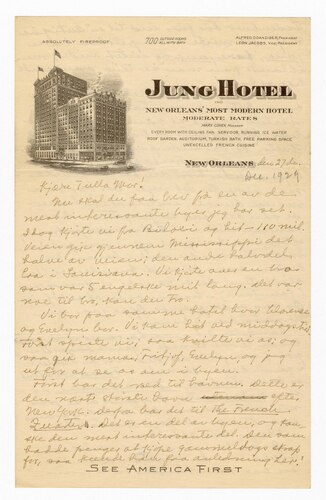 ABSOLUTELY FIREPROOF
700 OUTSIDE ROOMS
ALL WITH BATH
ALFRED D. DANZIGER, PRESIDENT
LEON JACOBS, VICE PRESIDENT
JUNG HOTEL
NEW ORLEANS' MOST MODERN HOTEL
MODERATE RATES
EVERY ROOM WITH CEILING FAN, SERVIDOR, RUNNING ICE WATER
ROOF GARDEN, AUDITORIUM, TURKISH BATH, FREE PARKING SPACE
UNEXCELLED FRENCH CUISINE
NEW ORLEANS, den 27de
Dec. 1929
Kjære Tulla Mor!
Nu skal du faa brev fra en av de
mest interessante byer jeg har set.
Idag kjørte vi fra Biloxi og hit — 110 mil.
Veien gik gjennem Mississippi det
halve av veien; den anden halvdel
bra i Louisiana. Vi kjørte over en bro
som var 5 engelske mil lang. det var
noe til bro, kan du tro.
Vi bor paa samme hotel hvor
og Evelyn bor. Vi kom hit ved middagstid.
Først spiste vi; saa hvilte vi os; og
saa gik mamma, Fritjof, Evelyn, og jeg
ut for at se os om i byen.
Først bar det ned til havnen. Dette er
den næst største havn efter
New York. derfra bar det til The French
Quarters. Det er en del av byen, og kan-
ske den mest interessante del. Den som
hadde penger at kjøpe gammeldags skrap
for, saa
SEE AMERICA FIRST